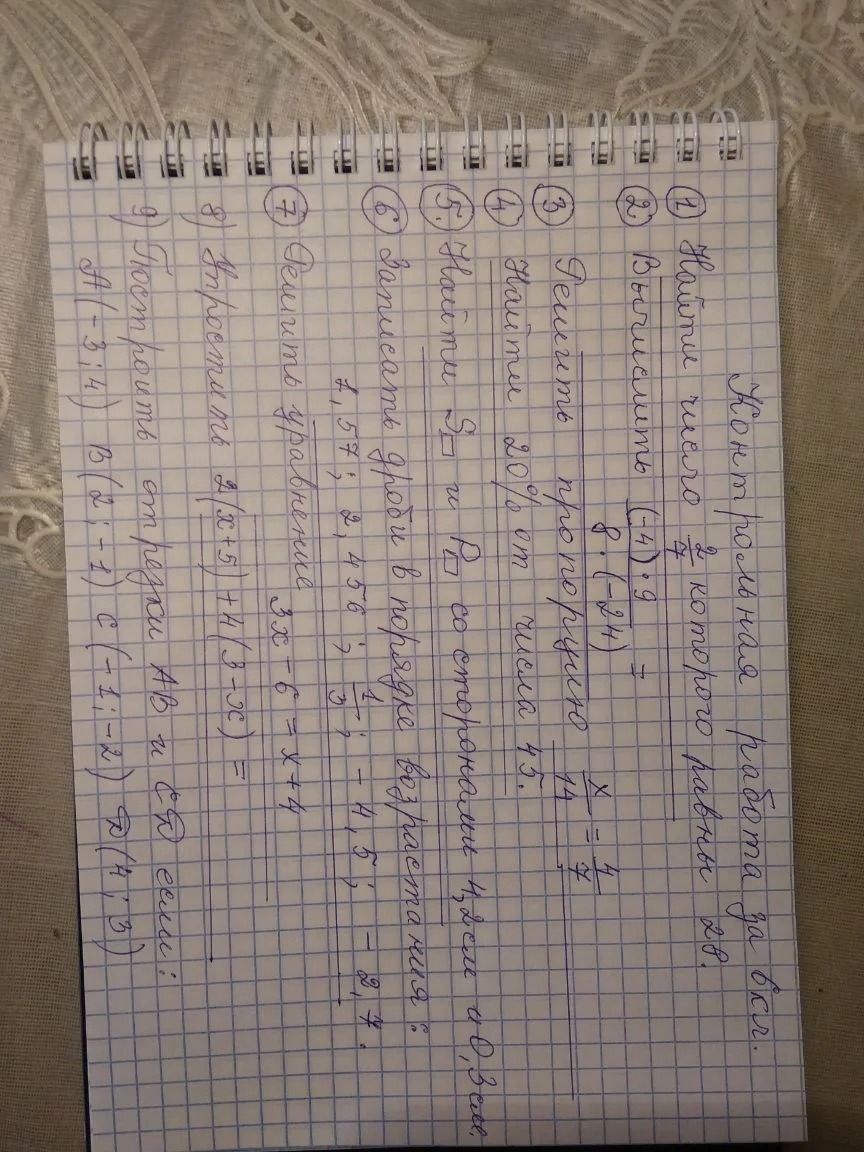 Контрольная работа за 6 кл.
① Найти число 2/7 которого равны 28.
② Вычислить (-4)·9 / 8·(-24) =
③ Решить пропорцию x/14 = 4/7
④ Найти 20% от числа 45.
⑤. Найти S□ и P□ со сторонами 4,2см и 0,3см.
⑥ Записать дроби в порядке возрастания:
7,57; 2,456; 1/3; -4,5; -2,7.
⑦ Решить уравнение 3x-6=x+4
8) Упростить 2(x+5)+4(3-x)=
9) Построить отрезки AB и CD если:
A(-3;4) B(2;-1) C(-1;-2) D(4;3)